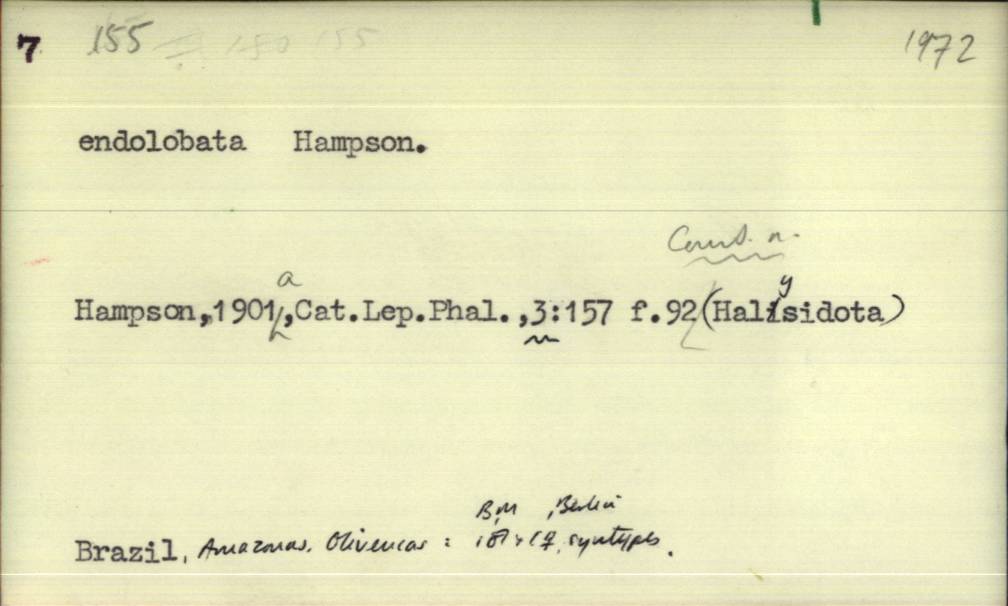 7 155 180 155 1972
endolobata Hampson.
Comb. n.
a y
Hampson,1901,Cat.Lep.Phal.,3:157 f.92(Halisidota)
BM, Berlin
Brazil, Amazonas. Olivencas : 1♂ + 1♀, syntypes.